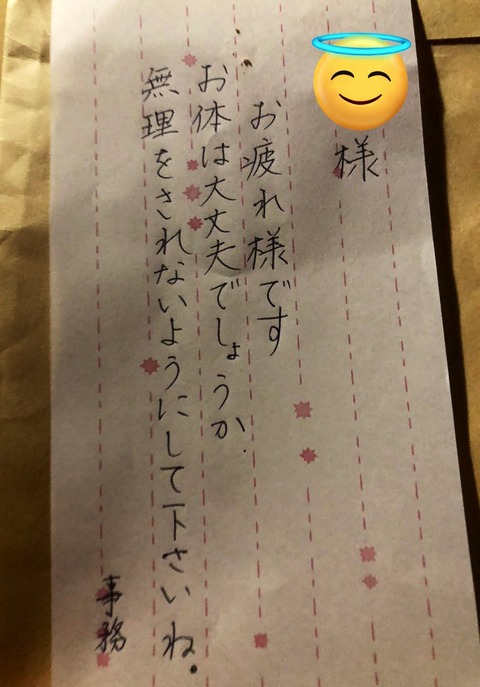 様
お疲れ様です
お体は大丈夫でしょうか.
無理をされないようにして下さいね.
事務